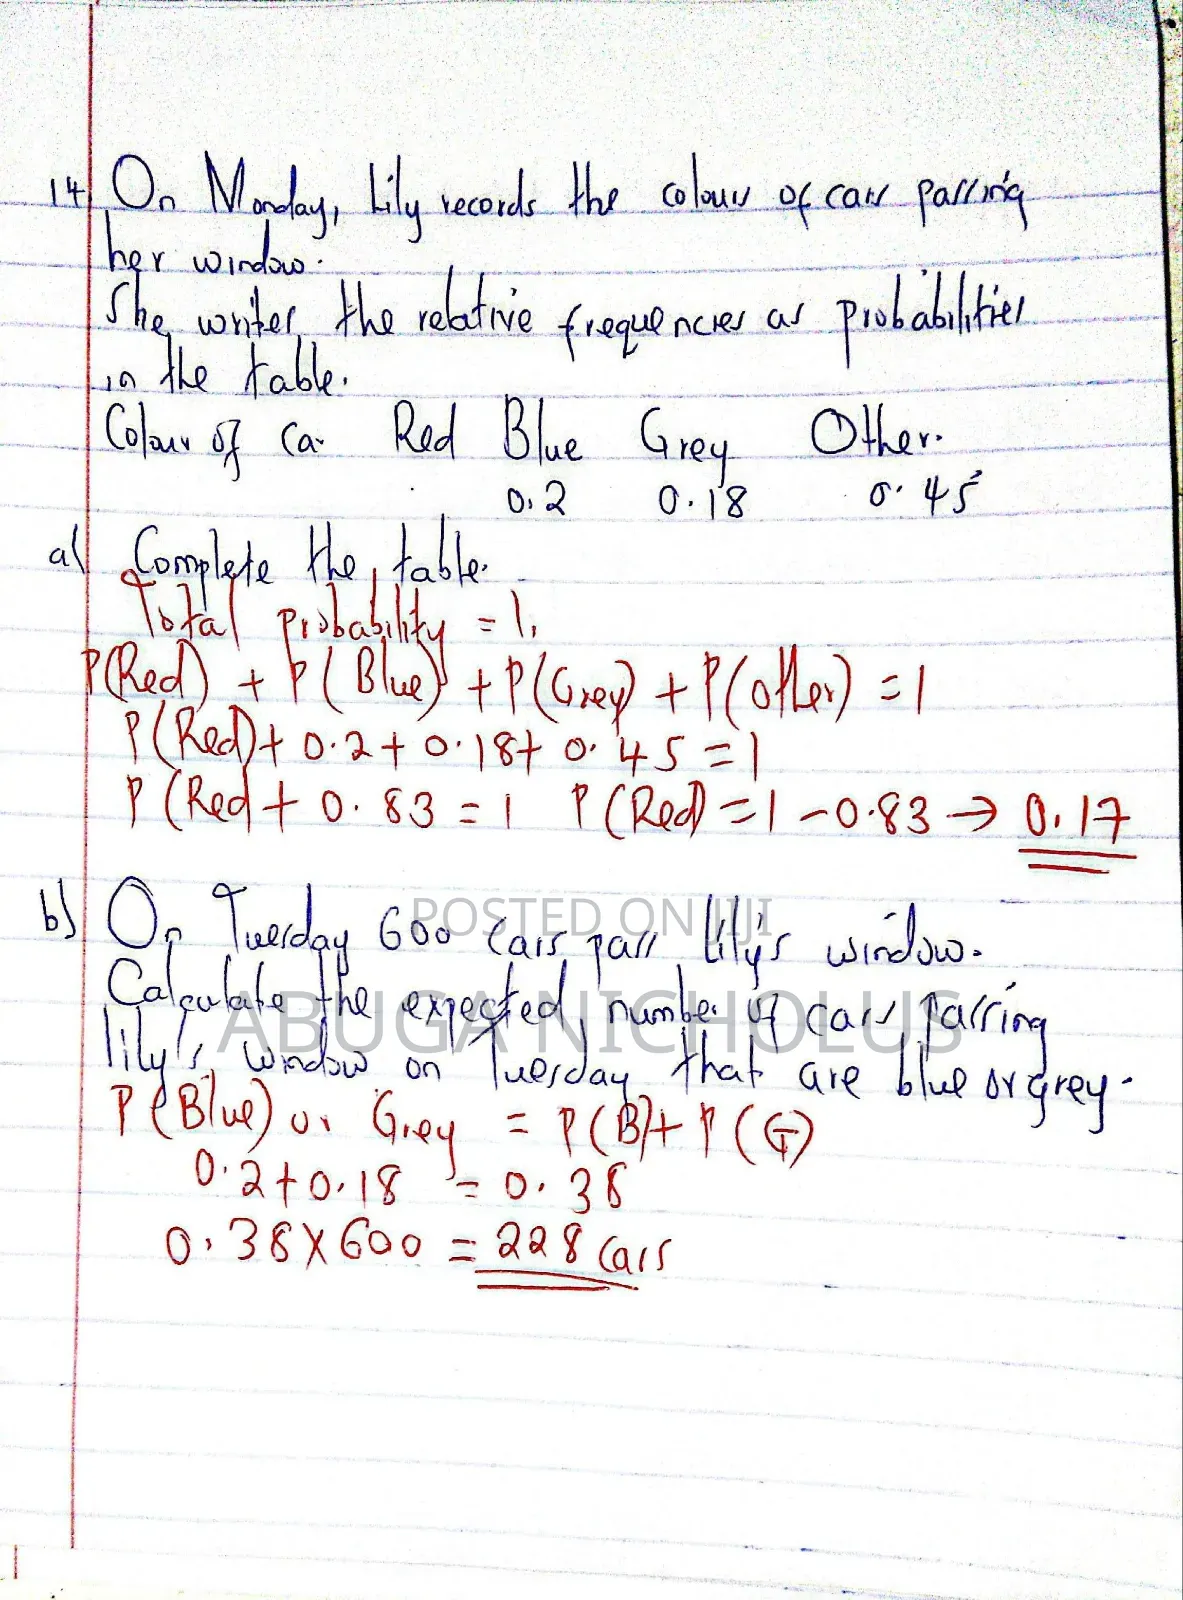 14) On Monday, Lily records the colour of cars passing
her window.
She writes the relative frequencies as probabilities
in the table.
Colour of car Red Blue Grey Other.
0.2 0.18 0.45
a) Complete the table.
Total probability = 1.
P(Red) + P(Blue) + P(Grey) + P(other) = 1
P(Red) + 0.2 + 0.18 + 0.45 = 1
P(Red + 0.83 = 1 P(Red) = 1 - 0.83 → 0.17
b) On Tuesday 600 cars pass lily's window.
POSTED ON JIJI
Calculate the expected number of cars passing
ABUGA NICHOLUS
lily's window on Tuesday that are blue or grey.
P(Blue) or Grey = P(B) + P(G)
0.2 + 0.18 = 0.38
0.38 x 600 = 228 cars